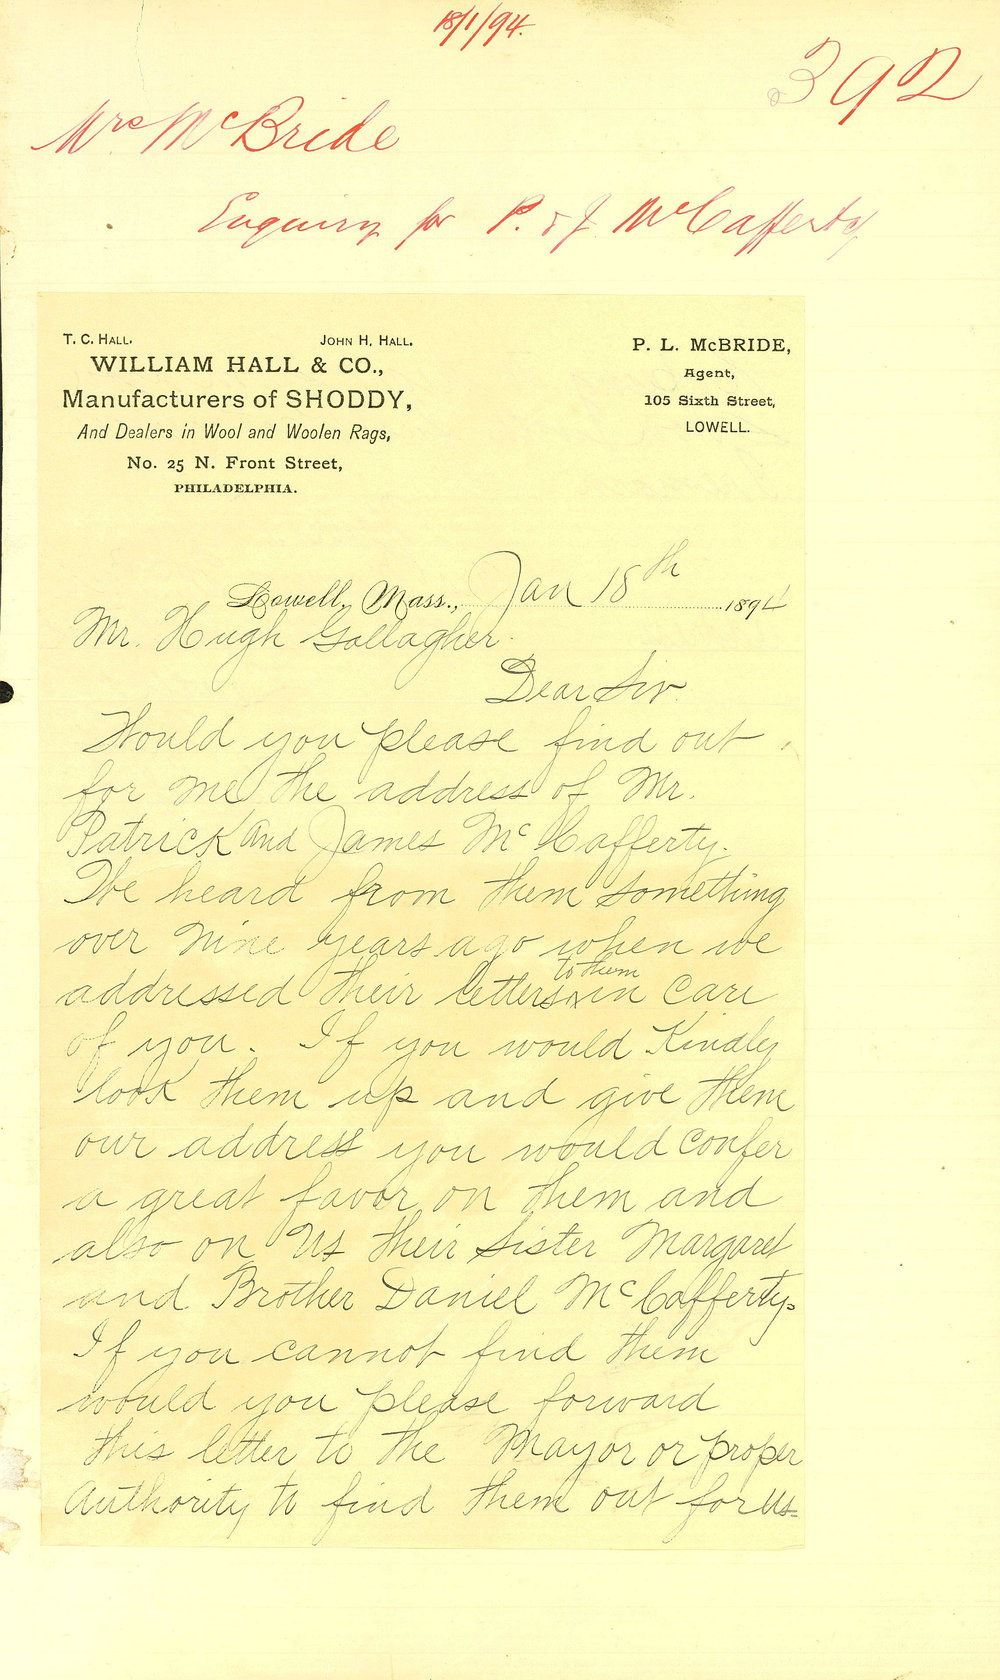 18/1/94.
392
Mrs McBride
Enquiry for P. & J McCafferty
T. C. HALL. JOHN H. HALL.
WILLIAM HALL & CO.,
Manufacturers of SHODDY,
And Dealers in Wool and Woolen Rags,
No. 25 N. Front Street,
PHILADELPHIA.
P. L. McBRIDE,
Agent,
105 Sixth Street,
LOWELL.
Lowell, Mass., Jan 18th 1894
Mr. Hugh Gallagher.
Dear Sir.
Would you please find out
for me the address of Mr.
Patrick and James McCafferty.
We heard from them something
over nine years ago when we
addressed their letters to them in care
of you. If you would Kindly
look them up and give them
our address you would confer
a great favor on them and
also on us their sister Margaret
and Brother Daniel McCafferty.
If you cannot find them
would you please forward
this letter to the Mayor or proper
Authority to find them out for us